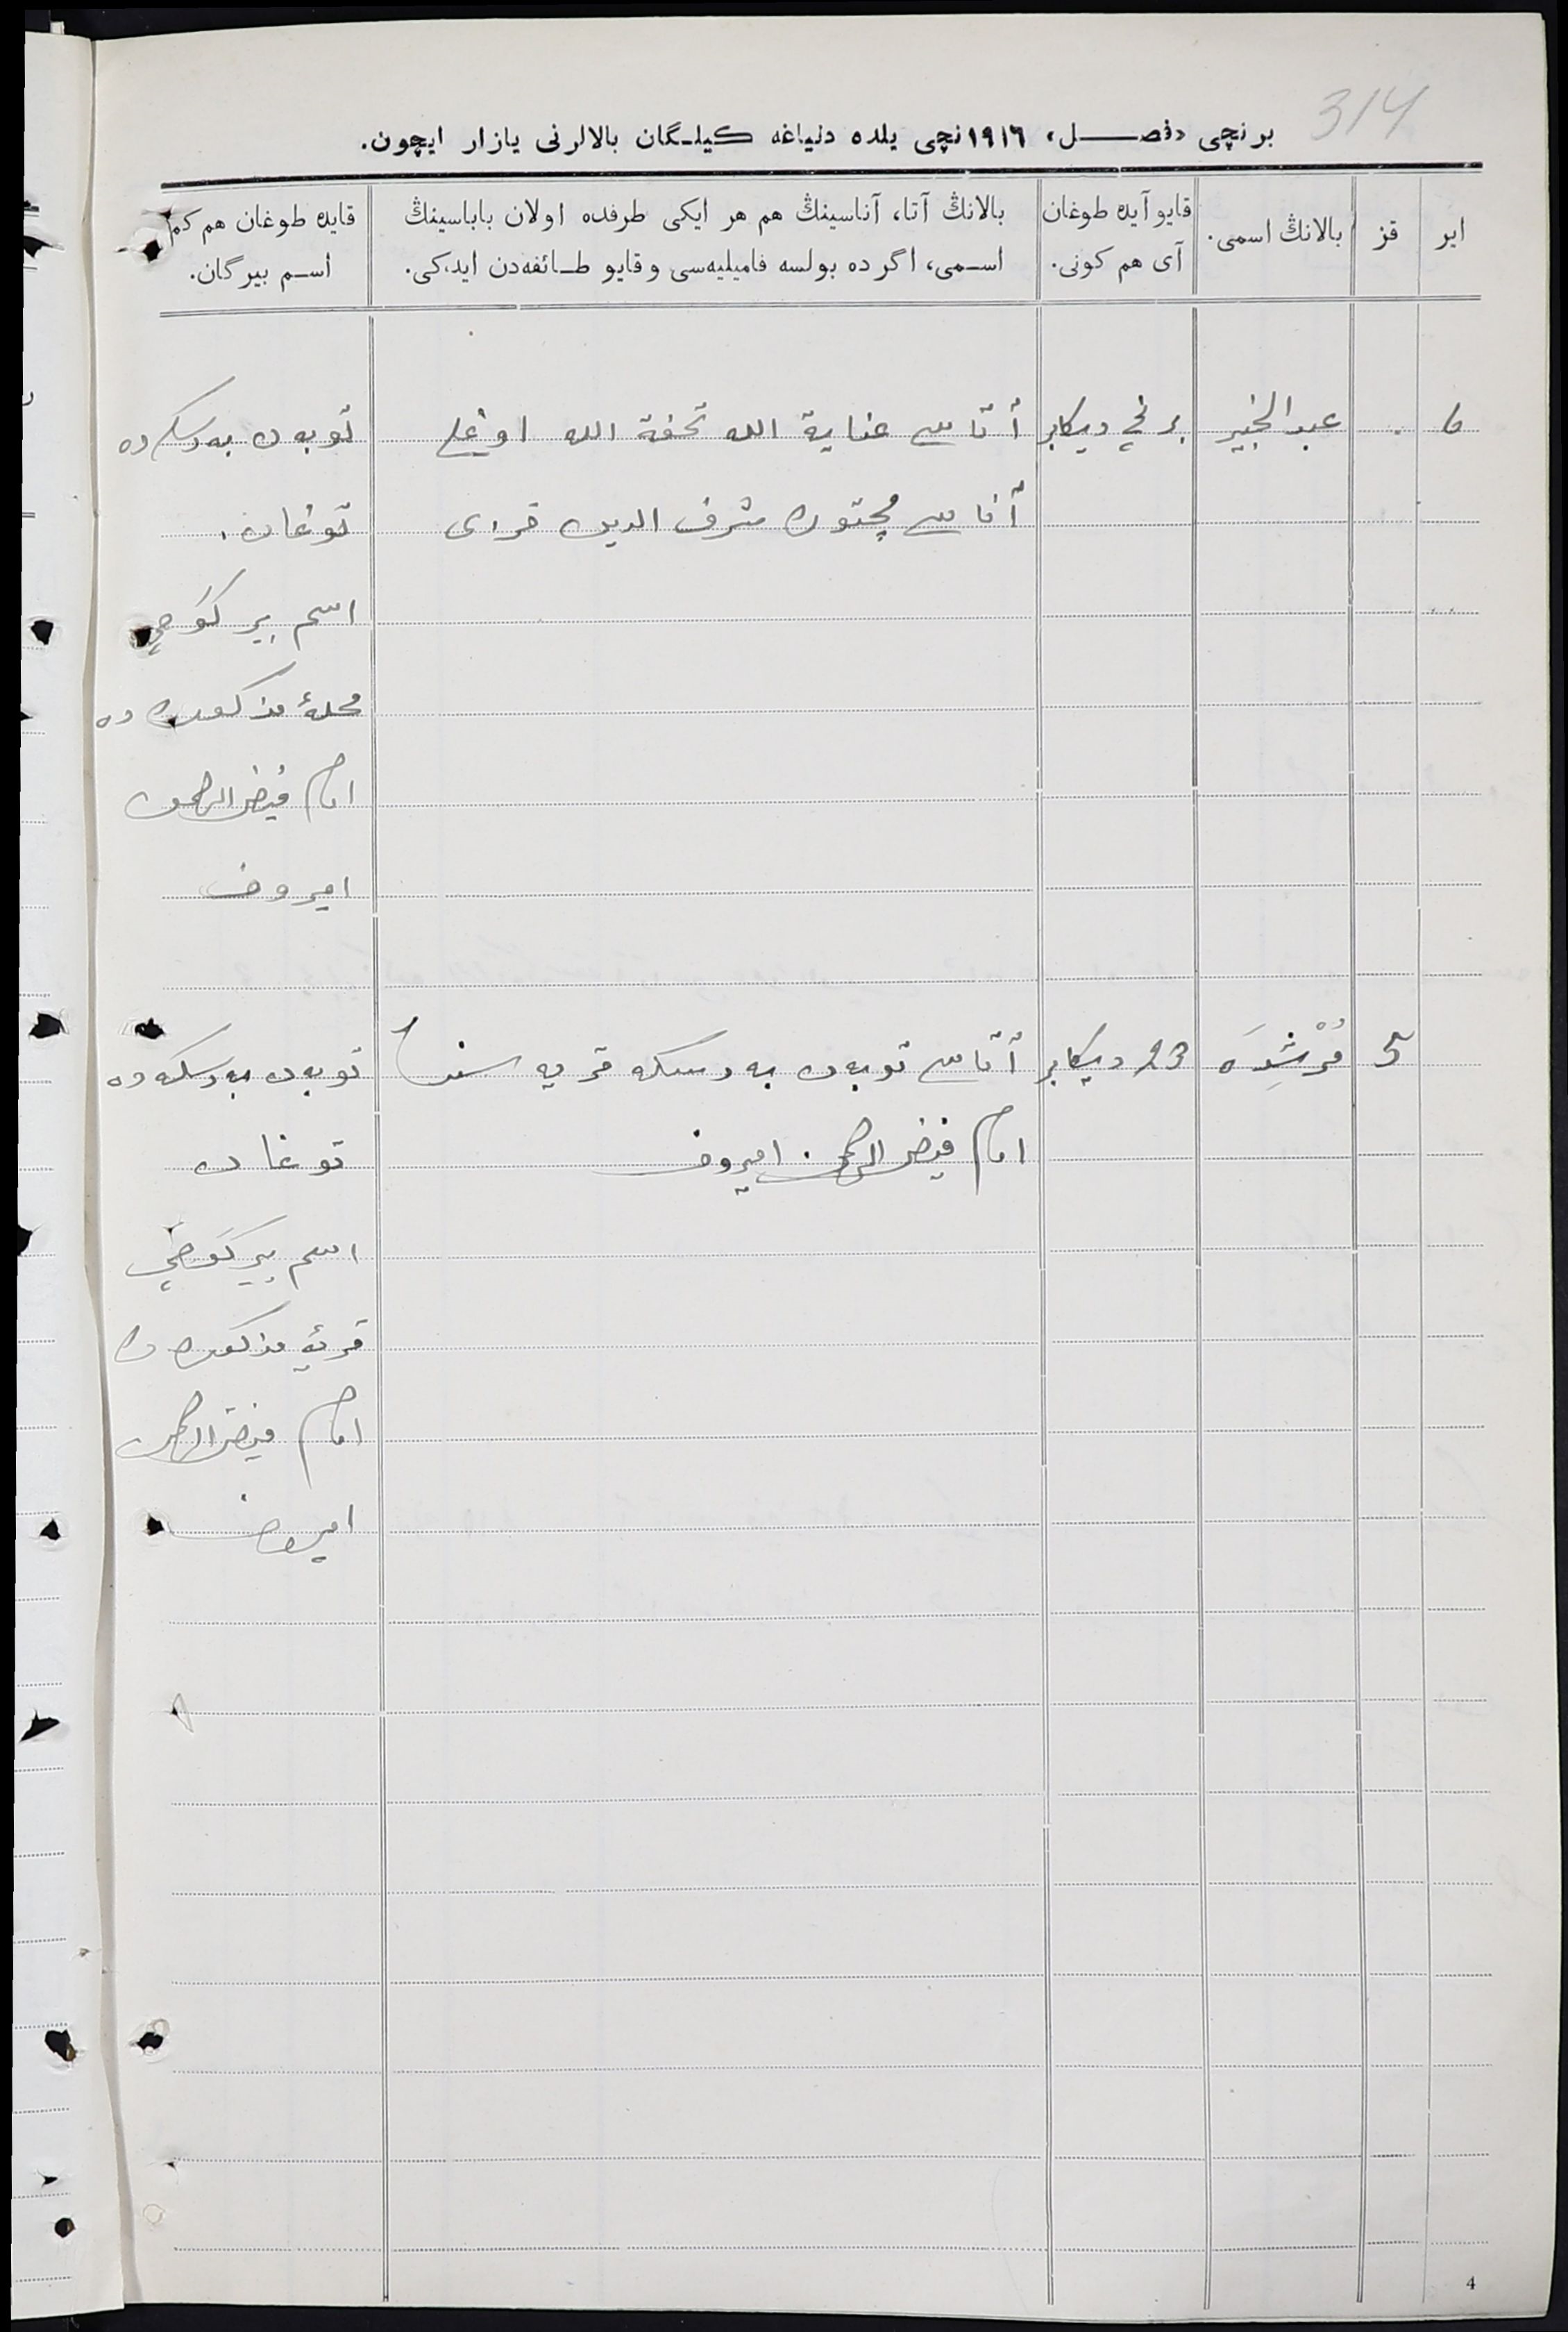 314
برنچی «فصل» ١٩١٦نچی یلده دنیاغه کیلگان بالالرنی یازار ایچون.
ایر
قز
بالانڭ اسمی.
قایو آیده طوغان
آی هم کونی.
بالانڭ آتا، آناسینڭ هم هر ایکی طرفده اولان باباسینڭ
اسمی، اگرده بولسه فامیلیه‌سی و قایو طائفه‌دن ایدکی.
قایده طوغان هم کم
اسم بیرگان.
6
عبدالخبیر
برنچی دیکابر
آتاسی عنایة الله تحفة الله اوغلی
توبه‌ن به‌رسکه ده
آناسی شرف الدین قزی
توغان.
اسم بیرگوچی
محلهٔ مذکوره ده
امام فیض الرحمن
امیروف
5
مُرْشِدَه
23 دیکابر
آتاسی توبه‌ن به‌رسکه قریه سنده
توبه‌ن به‌رسکه ده
امام فیض الرحمن امیروف
توغان
اسم بیرگوچی
قریهٔ مذکوره ده
امام فیض الرحمن
امیروف
4